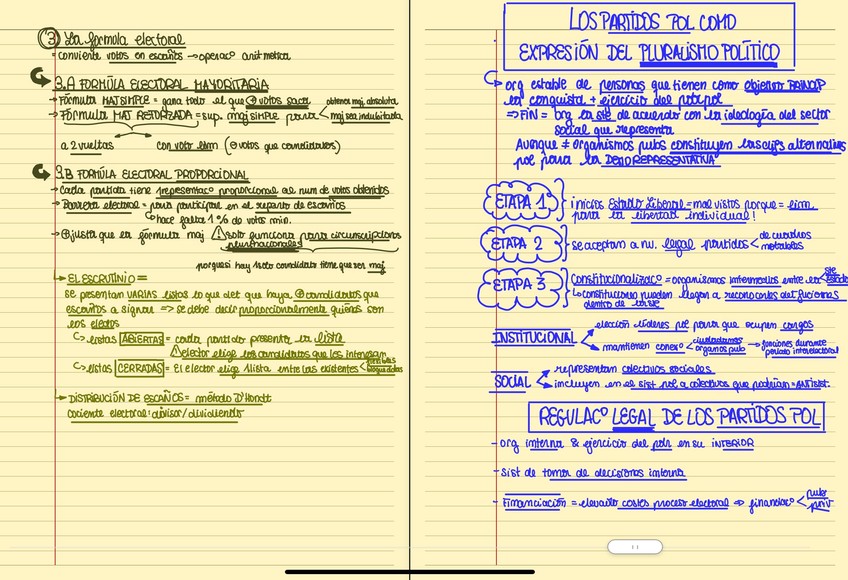 ③ La fórmula electoral
- convierte votos en escaños → operacº aritmética
3.A FORMÚLA ELECTORAL MAYORITARIA
→ Fórmula MAJ SIMPLE = gana todo el que ⊕ votos saca
→ Fórmula MAJ REFORZADA = sup. maj simple para
obtener maj. absoluta
maj sea indiscutida
a 2 vueltas
con voto elim (⊖ votos que candidatos)
3.B FORMÚLA ELECTORAL PROPORCIONAL
→ Cada partido tiene representacº proporcional al num de votos obtenidos
→ Barrera electoral = para participar en el reparto de escaños
hace falta 1% de votos min.
→ ⊕ justa que la fórmula maj ⚠ solo funciona para circunscripciones
plurinacionales
porque si hay 1 solo candidato tiene que ser maj
→ EL ESCRUTINIO =
se presentan VARIAS listas lo que det que haya ⊕ candidatos que
escaños a signar => se debe decir proporcionalmente quiénes son
los electos
listas ABIERTAS = cada partido presenta la lista
⚠ elector elige los candidatos que les interesan
listas CERRADAS = El elector elige 1 lista entre las existentes
bloqueadas
→ DISTRIBUCIÓN DE ESCAÑOS = método D'Hondt
cociente electoral: divisor / dividiendo
LOS PARTIDOS POL COMO
EXPRESIÓN DEL PLURALISMO POLÍTICO
org estable de personas que tienen como objetivo PRINCIP
la conquista + ejercicio del poder pol
=> FIN = org la ste de acuerdo con la ideología del sector
social que representa
Aunque ≠ organismos pubs constituyen las cijfs alternativas
pol para la DEMO REPRESENTATIVA
ETAPA 1
inicios Estado Liberal = mal vistos porque = lim.
para la libertad individual!
ETAPA 2
se aceptan a nu. legal partidos
de cuadros
notables
ETAPA 3
Constitucionalizacº = organismos intermedios entre la
ste
estado
constituciones pueden llegar a reconocerles det funciones
dentro de la ste
INSTITUCIONAL
elección líderes pol para que ocupen cargos
mantienen conexº
ciudadanos
órganos pub
→ funciones durante
periodo interelectoral
SOCIAL
representan colectivos sociales
incluyen en el sist pol a colectivos que podrían = ANTISIST.
REGULACº LEGAL DE LOS PARTIDOS POL
- org interna & ejercicio del pdr en su INTERIOR
- sist de tomar de decisiones interna
- Financiación = elevado costes proceso electoral => financiacº
pub
priv
11